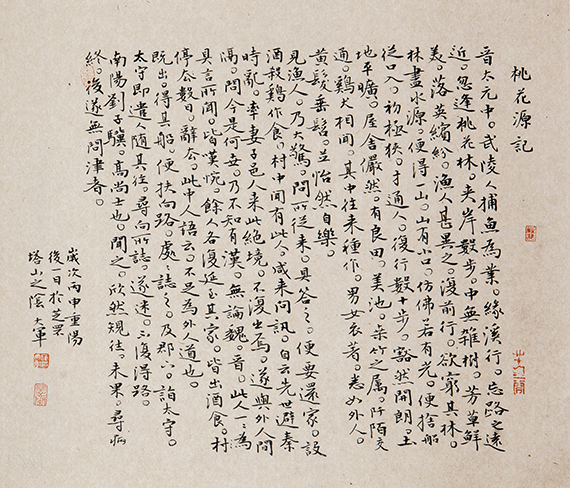 桃花源記
晋太元中。武陵人捕魚為業。緣溪行。忘路之遠
近。忽逢桃花林。夾岸數步。中無雜樹。芳草鮮
美。落英繽紛。漁人甚異之。復前行。欲窮其林。
林盡水源。便得一山。山有小口。仿佛若有光。便捨船
從口入。初極狹。才通人。復行數十步。豁然開朗。土
地平曠。屋舍儼然。有良田。美池。桑竹之属。阡陌交
通。鷄犬相聞。其中往来種作。男女衣著。悉如外人。
黄髮垂髫。並怡然自樂。
見漁人。乃大驚。問所從来。具答之。便要還家。設
酒殺鷄作食。村中聞有此人。咸来問訊。自云先世避秦
時亂。率妻子邑人来此絕境。不復出焉。遂與外人間
隔。問今是何世。乃不知有漢。無論魏。晋。此人一一為
具言所聞。皆嘆惋。餘人各復延至其家。皆出酒食。村
停數日。辭去。此中人語云。不足為外人道也。
既出。得其船。便扶向路。處處誌之。及郡下。詣太守。
太守即遣人隨其往。尋向所誌。遂迷。不復得路。
南陽劉子驥。高尚士也。聞之。欣然規往。未果。尋病
終。後遂無問津者。
歲次丙申重陽
後一日於芝罘
塔山之陰 大軍